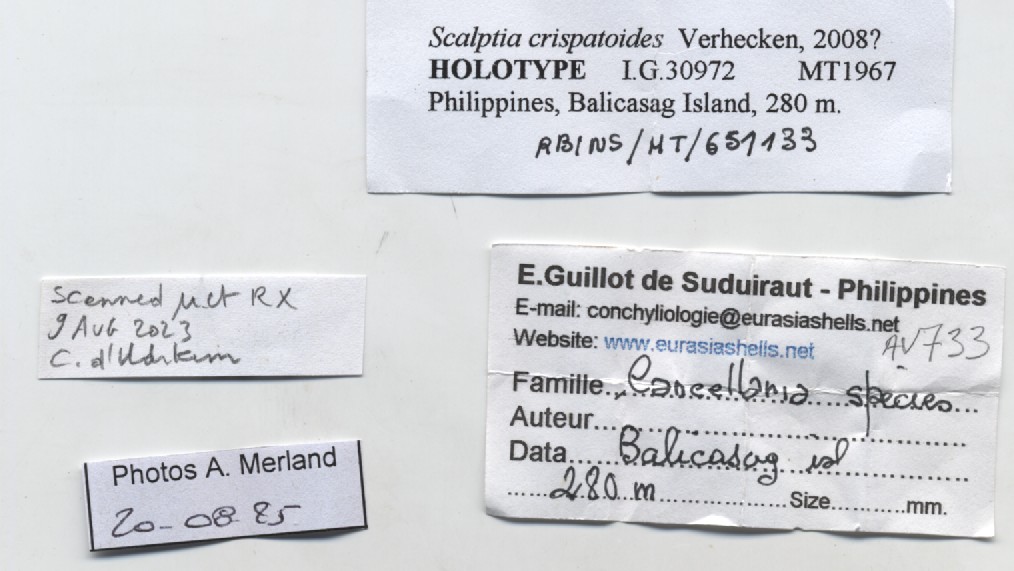 Scalptia crispatoides Verhecken, 2008?
HOLOTYPE I.G.30972 MT1967
Philippines, Balicasag Island, 280 m.
RBINS/MT/651133
Scanned µct RX
9 AUG 2023
C. d'Udekem
Photos A. Merland
20-08 25
E.Guillot de Suduiraut - Philippines
E-mail: conchyliologie@eurasiashells.net
Website: www.eurasiashells.net
AV733
Famille..Cancellaria.....species...
Auteur..........................................
Data....Balicasag isl..................
......280 m.................Size..........mm.